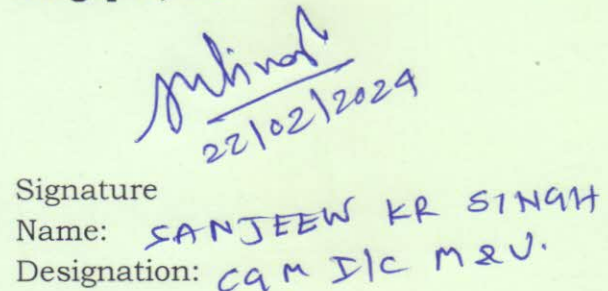 22/02/2024
Signature
Name: SANJEEW KR SINGH
Designation: CGM I/C M&U.